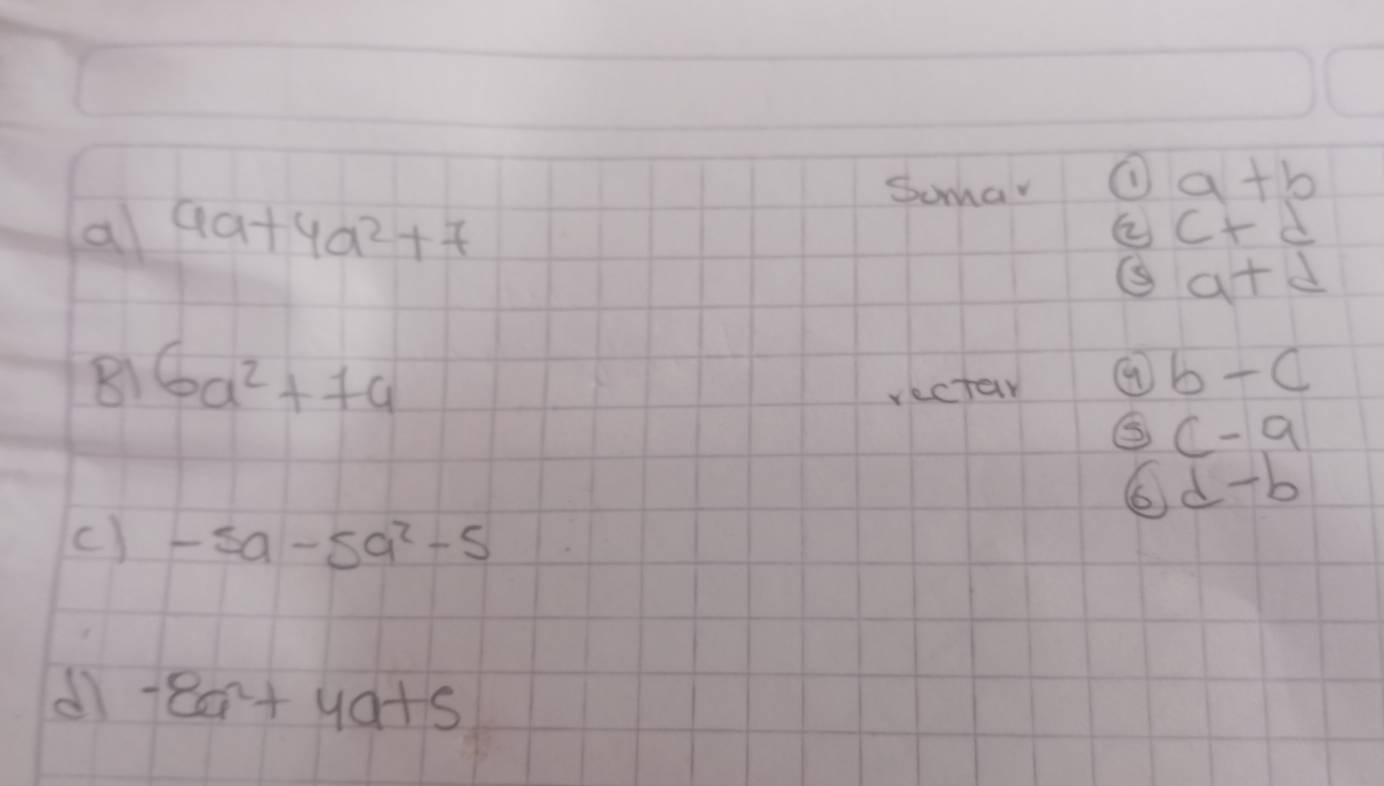 a) 4a+4a²+7
B) 6a²+7a
c) -5a-5a²-5
d) -8a²+4a+5
Sumar ① a+b
② c+d
③ a+d
rectar ④ b-c
⑤ c-a
⑥ d-b